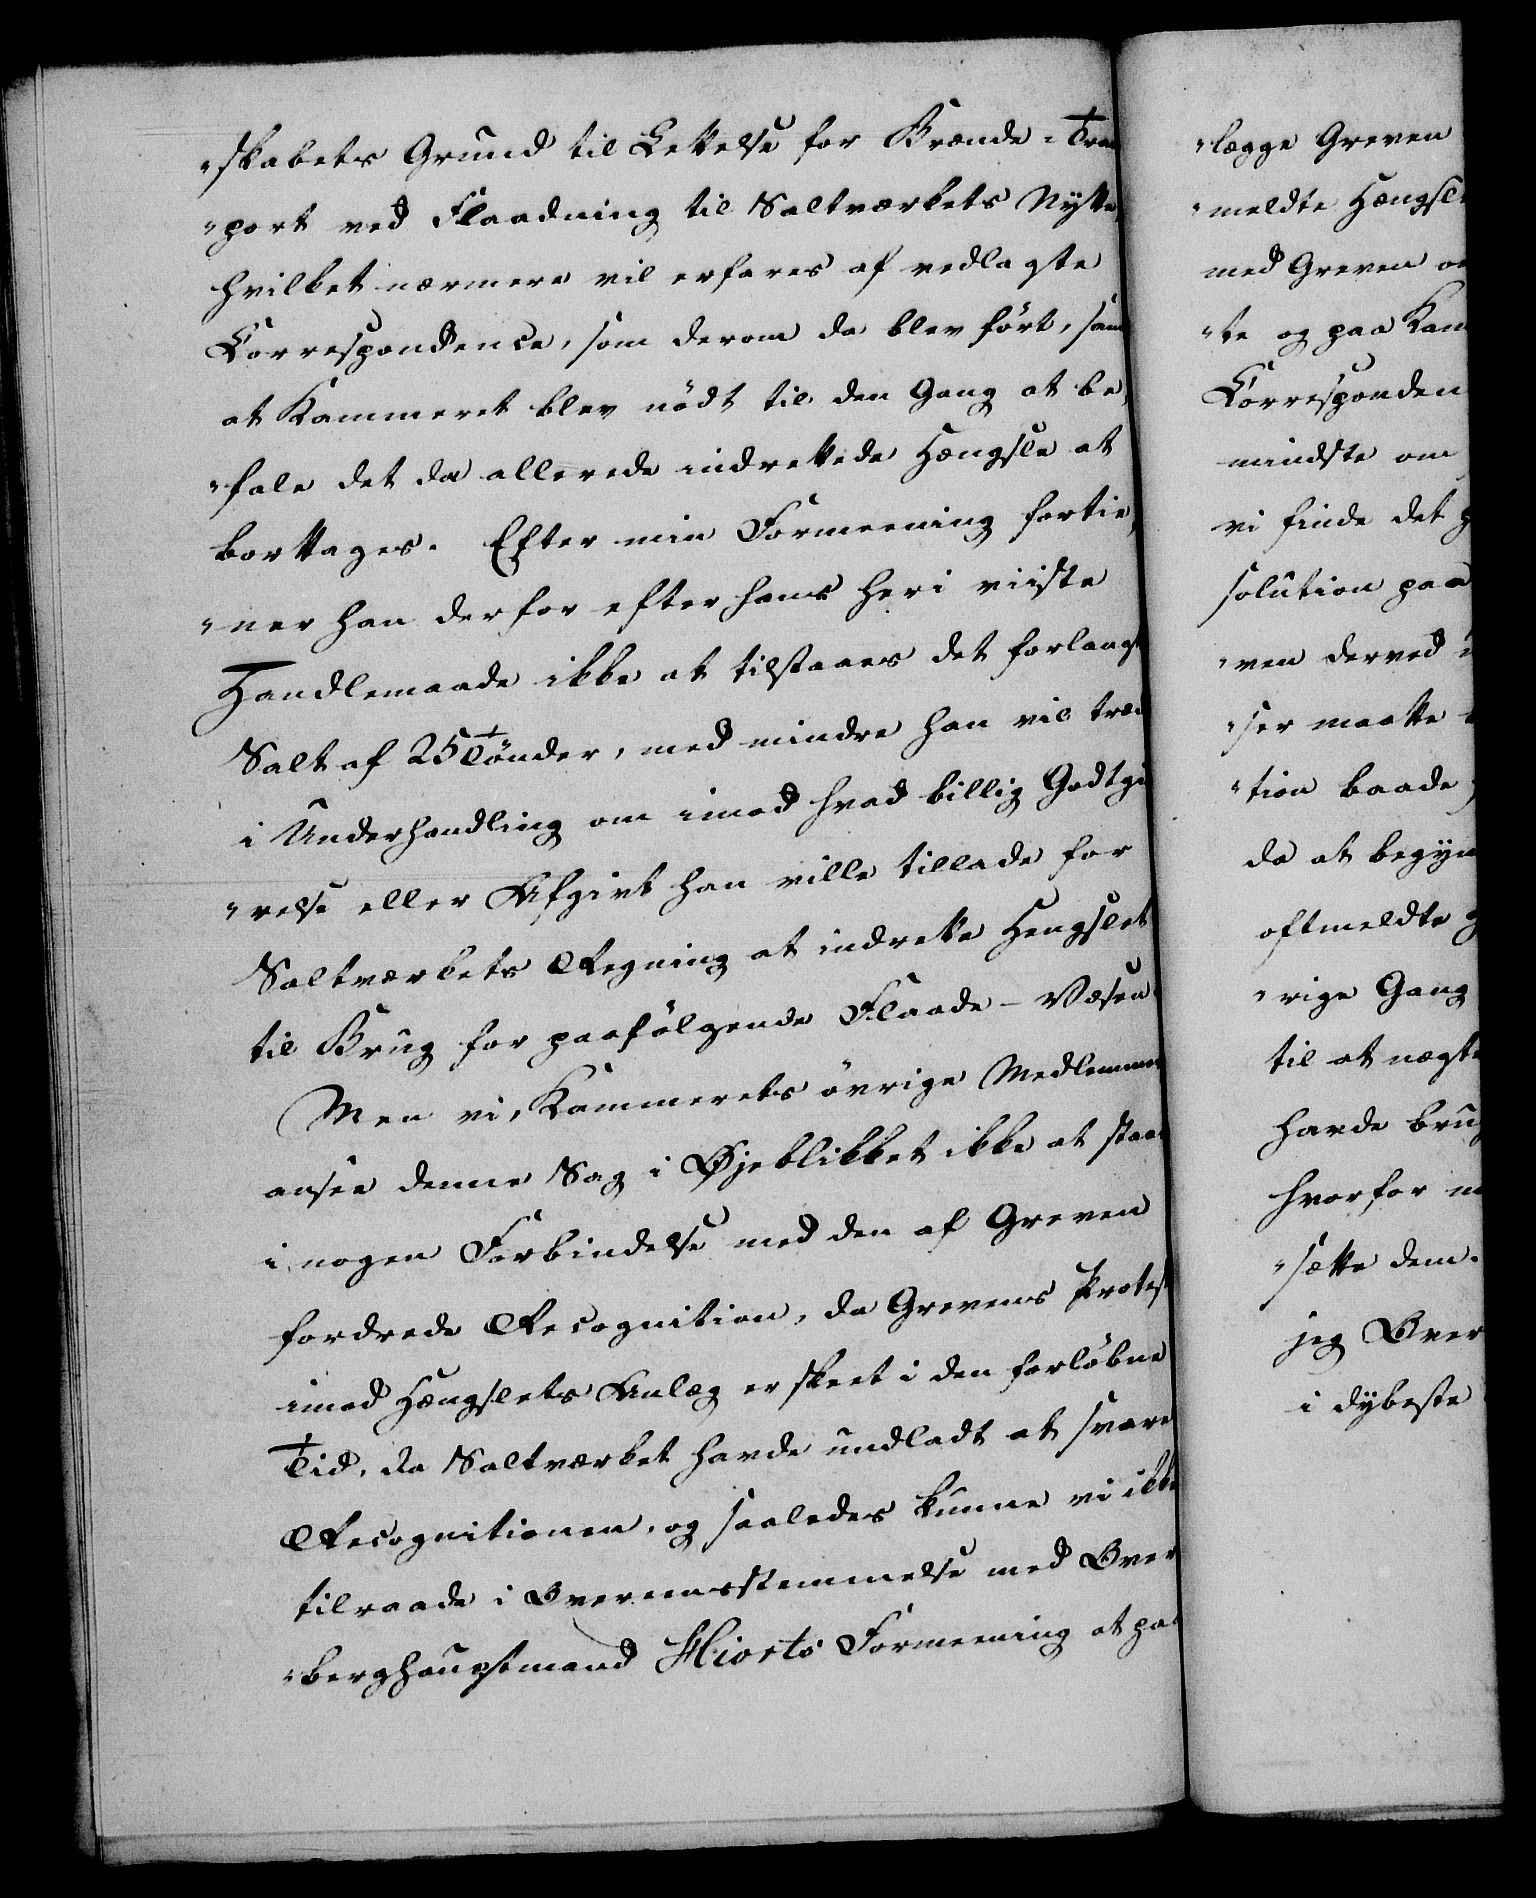 "skabets Grund til Lettelse for Brænde-Tran
"port ved Flaadning til Saltværkets Nytte,
hvilket nærmere vil erfares af vedlagte
Correspondence, som derom da blev ført, sam
at Kammeret blev nödt til den Gang at be,
"fale det da allerede indrettede Hængsle at
borttages. Efter min Formeening fortie,
"ner han derfor efter hans heri viiste
Handlemaade ikke at tilstaaes det forlangt
Salt af 25 Tönder, med mindre han vil træd
i Underhandling om imod hvad billig Godtgiö
"relse eller Afgivt han ville tillade for
Saltværkets Regning at indrette Hengslet
til Brug for paafölgende Flaade-Væsen.
Men vi, Kammerets övrige Medlemmer
ansee denne Sag i Øjeblikket ikke at staae
i nogen Forbindelse med den af Greven
fordrede Recognition, da Grevens Protest
imod Hængslets Anlæg er skeet i den forløbne
Tid, da Saltværket havde undladt at svare
Recognitionen, og saaledes kunne vi ikke
tilraade i Overeensstemmelse med Over
"berghauptmand Hiorts Formeening at paa
"lægge Greven
"meldte Hængsle
med Greven
"te og paa Kam
Corresponden
mindste om
vi finde det
solution paa
"ven derved
"ser maatte
"tion baade
da at begyn
oftmeldte
"rige Gang
til at nægte
havde brug
hvorfor
"sætte dem.
jeg Over
i dybeste